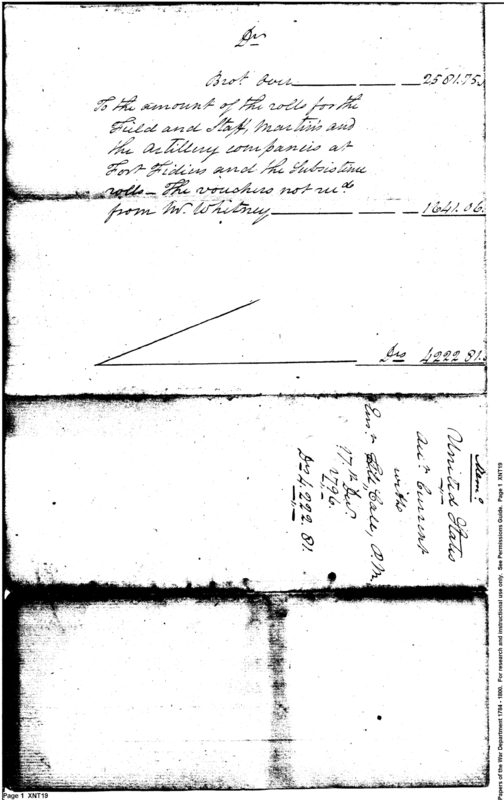 Drs
Brot Over 2581.75
To the amount of the rolls for the
Field and Staff, Martins and
the Artillery companies at
Fort Fidius and the Subsistence
rolls - The vouchers not recd
from Mr. Whitney 1641.06.
Drs 4222 81.
Memo
United States
Acct Current
with
Ensn Call, P.M.
1796.
Drs 4.222.81.
Page 1 XNT19
Papers of the War Department 1784 - 1800. For research and instructional use only. See Permissions Guide. Page 1 XNT19